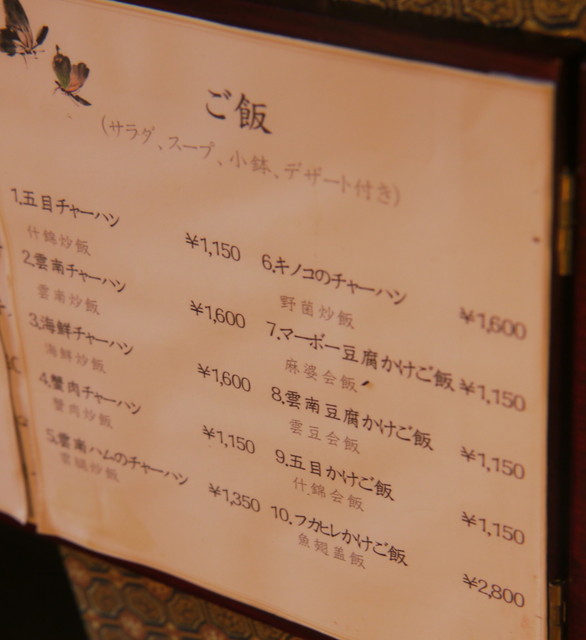 ご飯
(サラダ、スープ、小鉢、デザート付き)
1.五目チャーハン ¥1,150
什錦炒飯
2.雲南チャーハン ¥1,600
雲南炒飯
3.海鮮チャーハン ¥1,600
海鮮炒飯
4.蟹肉チャーハン ¥1,150
蟹肉炒飯
5.雲南ハムのチャーハン ¥1,350
雲腿炒飯
6.キノコのチャーハン ¥1,600
野菌炒飯
7.マーボー豆腐かけご飯 ¥1,150
麻婆会飯
8.雲南豆腐かけご飯 ¥1,150
雲豆会飯
9.五目かけご飯 ¥1,150
什錦会飯
10.フカヒレかけご飯 ¥2,800
魚翅盖飯